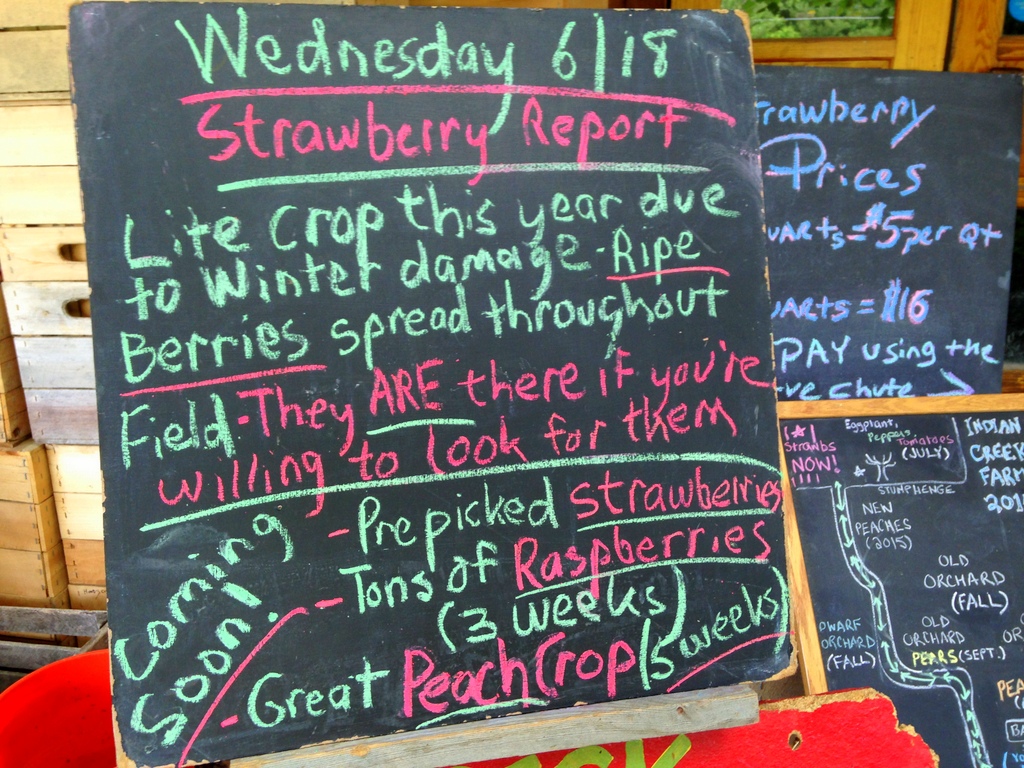 Wednesday 6/18
Strawberry Report
Lite crop this year due
to Winter damage - Ripe
Berries spread throughout
Field - They ARE there if you're
willing to look for them
Coming
Soon!
- Prepicked Strawberries
- Tons of Raspberries
(3 weeks)
- Great Peach Crop (5 weeks)
rawberry
Prices
uarts = $5 per Qt
uarts = $16
PAY using the
ve chute →
STRAWBS
NOW!
!!!!
Eggplant,
Peppers,
Tomatoes
(JULY)
STUMPHENGE
INDIAN
CREEK
FARM
201
NEW
PEACHES
(2015)
OLD
ORCHARD
(FALL)
DWARF
ORCHARD
(FALL)
OLD
ORCHARD
PEARS (SEPT.)
OR
PEA
BA